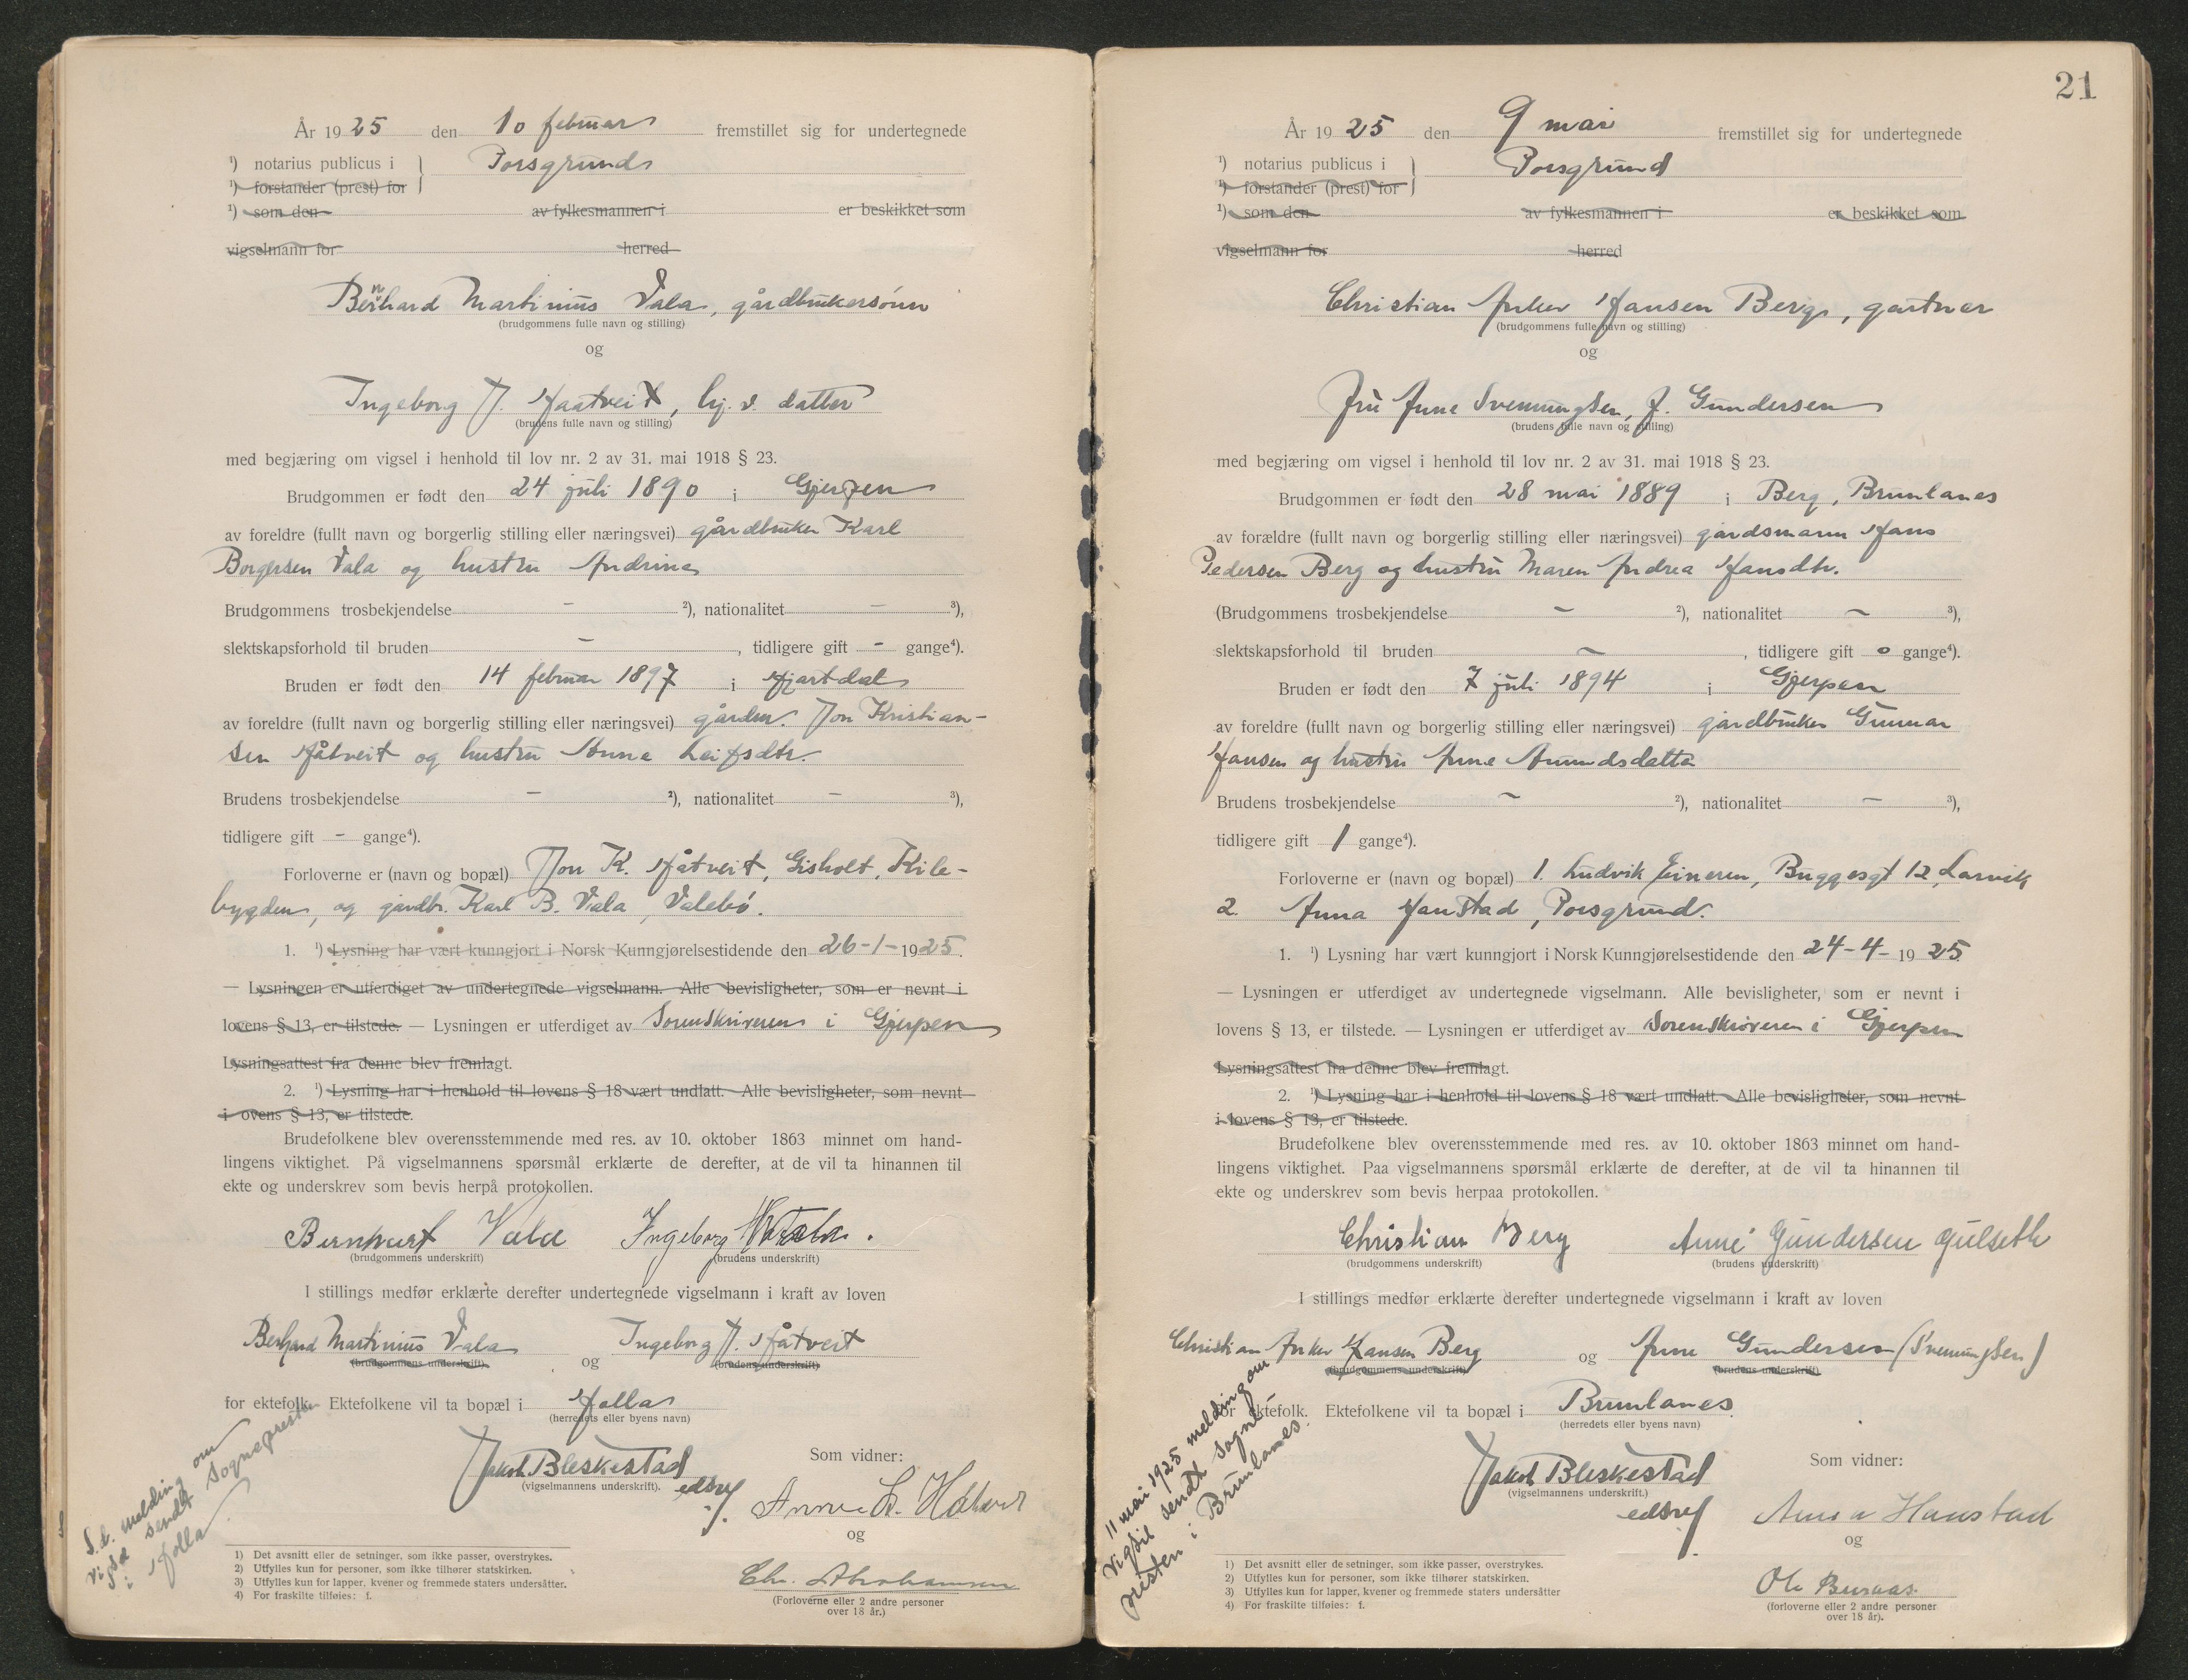 År 1925 den 10 februar fremstillet sig for undertegnede
¹) notarius publicus i } Porsgrund
¹) forstander (prest) for
¹) som den av fylkesmannen i er beskikket som
vigselmann for herred
Bernhard Martinius Vala, gårdbrukersønn
(brudgommens fulle navn og stilling)
og
Ingeborg J. Haatveit, hj. v. datter
(brudens fulle navn og stilling)
med begjæring om vigsel i henhold til lov nr. 2 av 31. mai 1918 § 23.
Brudgommen er født den 24 juli 1890 i Gjerpen
av foreldre (fullt navn og borgerlig stilling eller næringsvei) gårdbruker Karl
Borgersen Vala og hustru Andrine
Brudgommens trosbekjendelse - ²), nationalitet - ³),
slektskapsforhold til bruden - , tidligere gift - gange⁴).
Bruden er født den 14 februar 1897 i Hjartdal
av foreldre (fullt navn og borgerlig stilling eller næringsvei) gårdbr. Jon Kristian-
sen Håtveit og hustru Anne Leifsdtr.
Brudens trosbekjendelse - ²), nationalitet - ³),
tidligere gift - gange⁴).
Forloverne er (navn og bopæl) Jon K. Håtveit, Gisholt, Kile-
bygden, og gårdbr. Karl B. Vala, Valebø.
1. ¹) Lysning har vært kunngjort i Norsk Kunngjørelsestidende den 26-1-1925.
— Lysningen er utferdiget av undertegnede vigselmann. Alle bevisligheter, som er nevnt i
lovens § 13, er tilstede. — Lysningen er utferdiget av Sorenskriveren i Gjerpen
Lysningsattest fra denne blev fremlagt.
2. ¹) Lysning har i henhold til lovens § 18 vært undlatt. Alle bevisligheter, som nevnt
i ovens § 13, er tilstede.
Brudefolkene blev overensstemmende med res. av 10. oktober 1863 minnet om hand-
lingens viktighet. På vigselmannens spørsmål erklærte de derefter, at de vil ta hinannen til
ekte og underskrev som bevis herpå protokollen.
Bernhart Vala Ingeborg
(brudgommens underskrift) (brudens underskrift)
I stillings medfør erklærte derefter undertegnede vigselmann i kraft av loven
Berhard Martinius Vala og Ingeborg J. Håtveit
(brudgommens underskrift) (brudens underskrift)
for ektefolk. Ektefolkene vil ta bopæl i Holla
(herredets eller byens navn)
S.d. melding om
vigsel sendt sognepresten
i Holla
Jakob Bleskestad
(vigselmannens underskrift). edsv.f.
Som vidner:
Anne L.
og
Chr. Abrahamsen
(Forloverne eller 2 andre personer
over 18 år.)
1) Det avsnitt eller de setninger, som ikke passer, overstrykes.
2) Utfylles kun for personer, som ikke tilhører statskirken.
3) Utfylles kun for lapper, kvener og fremmede staters undersåtter.
4) For fraskilte tilføies: f.
21
År 1925 den 9 mai fremstillet sig for undertegnede
¹) notarius publicus i } Porsgrund
¹) forstander (prest) for
¹) som den av fylkesmannen i er beskikket som
vigselmann for herred
Christian Anker Hansen Berg, gartner
(brudgommens fulle navn og stilling)
og
Fru Anne Svenungsen, f. Gundersen
(brudens fulle navn og stilling)
med begjæring om vigsel i henhold til lov nr. 2 av 31. mai 1918 § 23.
Brudgommen er født den 28 mai 1889 i Berg, Brunlanes
av forældre (fullt navn og borgerlig stilling eller næringsvei) gårdsmann Hans
Pedersen Berg og hustru Maren Andrea Hansdtr.
(Brudgommens trosbekjendelse - ²), nationalitet - ³),
slektskapsforhold til bruden - , tidligere gift 0 gange⁴).
Bruden er født den 7 juli 1894 i Gjerpen
av foreldre (fullt navn og borgerlig stilling eller næringsvei) gårdbruker Gunnar
Hansen og hustru Anne Amundsdatter
Brudens trosbekjendelse - ²), nationalitet - ³),
tidligere gift 1 gange⁴).
Forloverne er (navn og bopæl) 1. Ludvik Eineren, Buggesgt 12, Larvik
2. Anna Hanstad, Porsgrund.
1. ¹) Lysning har vært kunngjort i Norsk Kunngjørelsestidende den 24-4-1925
— Lysningen er utferdiget av undertegnede vigselmann. Alle bevisligheter, som er nevnt i
lovens § 13, er tilstede. — Lysningen er utferdiget av Sorenskriveren i Gjerpen
Lysningsattest fra denne blev fremlagt.
2. ¹) Lysning har i henhold til lovens § 18 vært undlatt. Alle bevisligheter, som nevnt
i lovens § 13, er tilstede.
Brudefolkene blev overensstemmende med res. av 10. oktober 1863 minnet om hand-
lingens viktighet. Paa vigselmannens spørsmål erklærte de derefter, at de vil ta hinannen til
ekte og underskrev som bevis herpaa protokollen.
Christian Berg Anne Gundersen Gulseth
(brudgommens underskrift) (brudens underskrift)
I stillings medfør erklærte derefter undertegnede vigselmann i kraft av loven
Christian Anker Hansen Berg og Anne Gundersen (Svenungsen)
(brudgommens underskrift) (brudens underskrift)
for ektefolk. Ektefolkene vil ta bopæl i Brunlanes
(herredets eller byens navn)
11 mai 1925 melding om
vigsel sendt sogne-
presten i Brunlanes.
Jakob Bleskestad
(vigselmannens underskrift.)
edsv.f
Som vidner:
Anna Hanstad
og
Ole Buraas.
(forloverne eller 2 andre personer
over 18 år).
1) Det avsnitt eller de setninger, som ikke passer, overstrykes.
2) Utfylles kun for personer, som ikke tilhører statskirken.
3) Utfylles kun for lapper, kvener og fremmede staters undersåtter
4) For fraskilte tilføies: f.